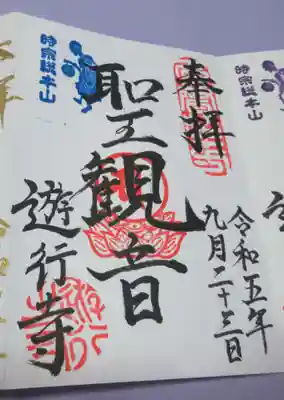 時宗総本山
奉拝
令和五年
九月二十三日
聖観音
遊行寺
時宗総本山